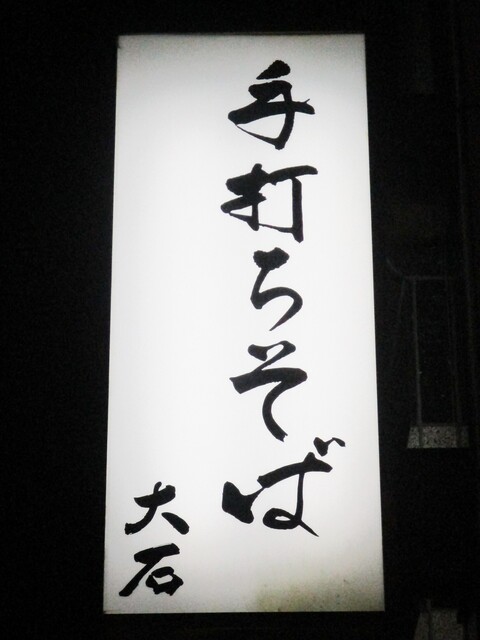 手打ちそば
大石